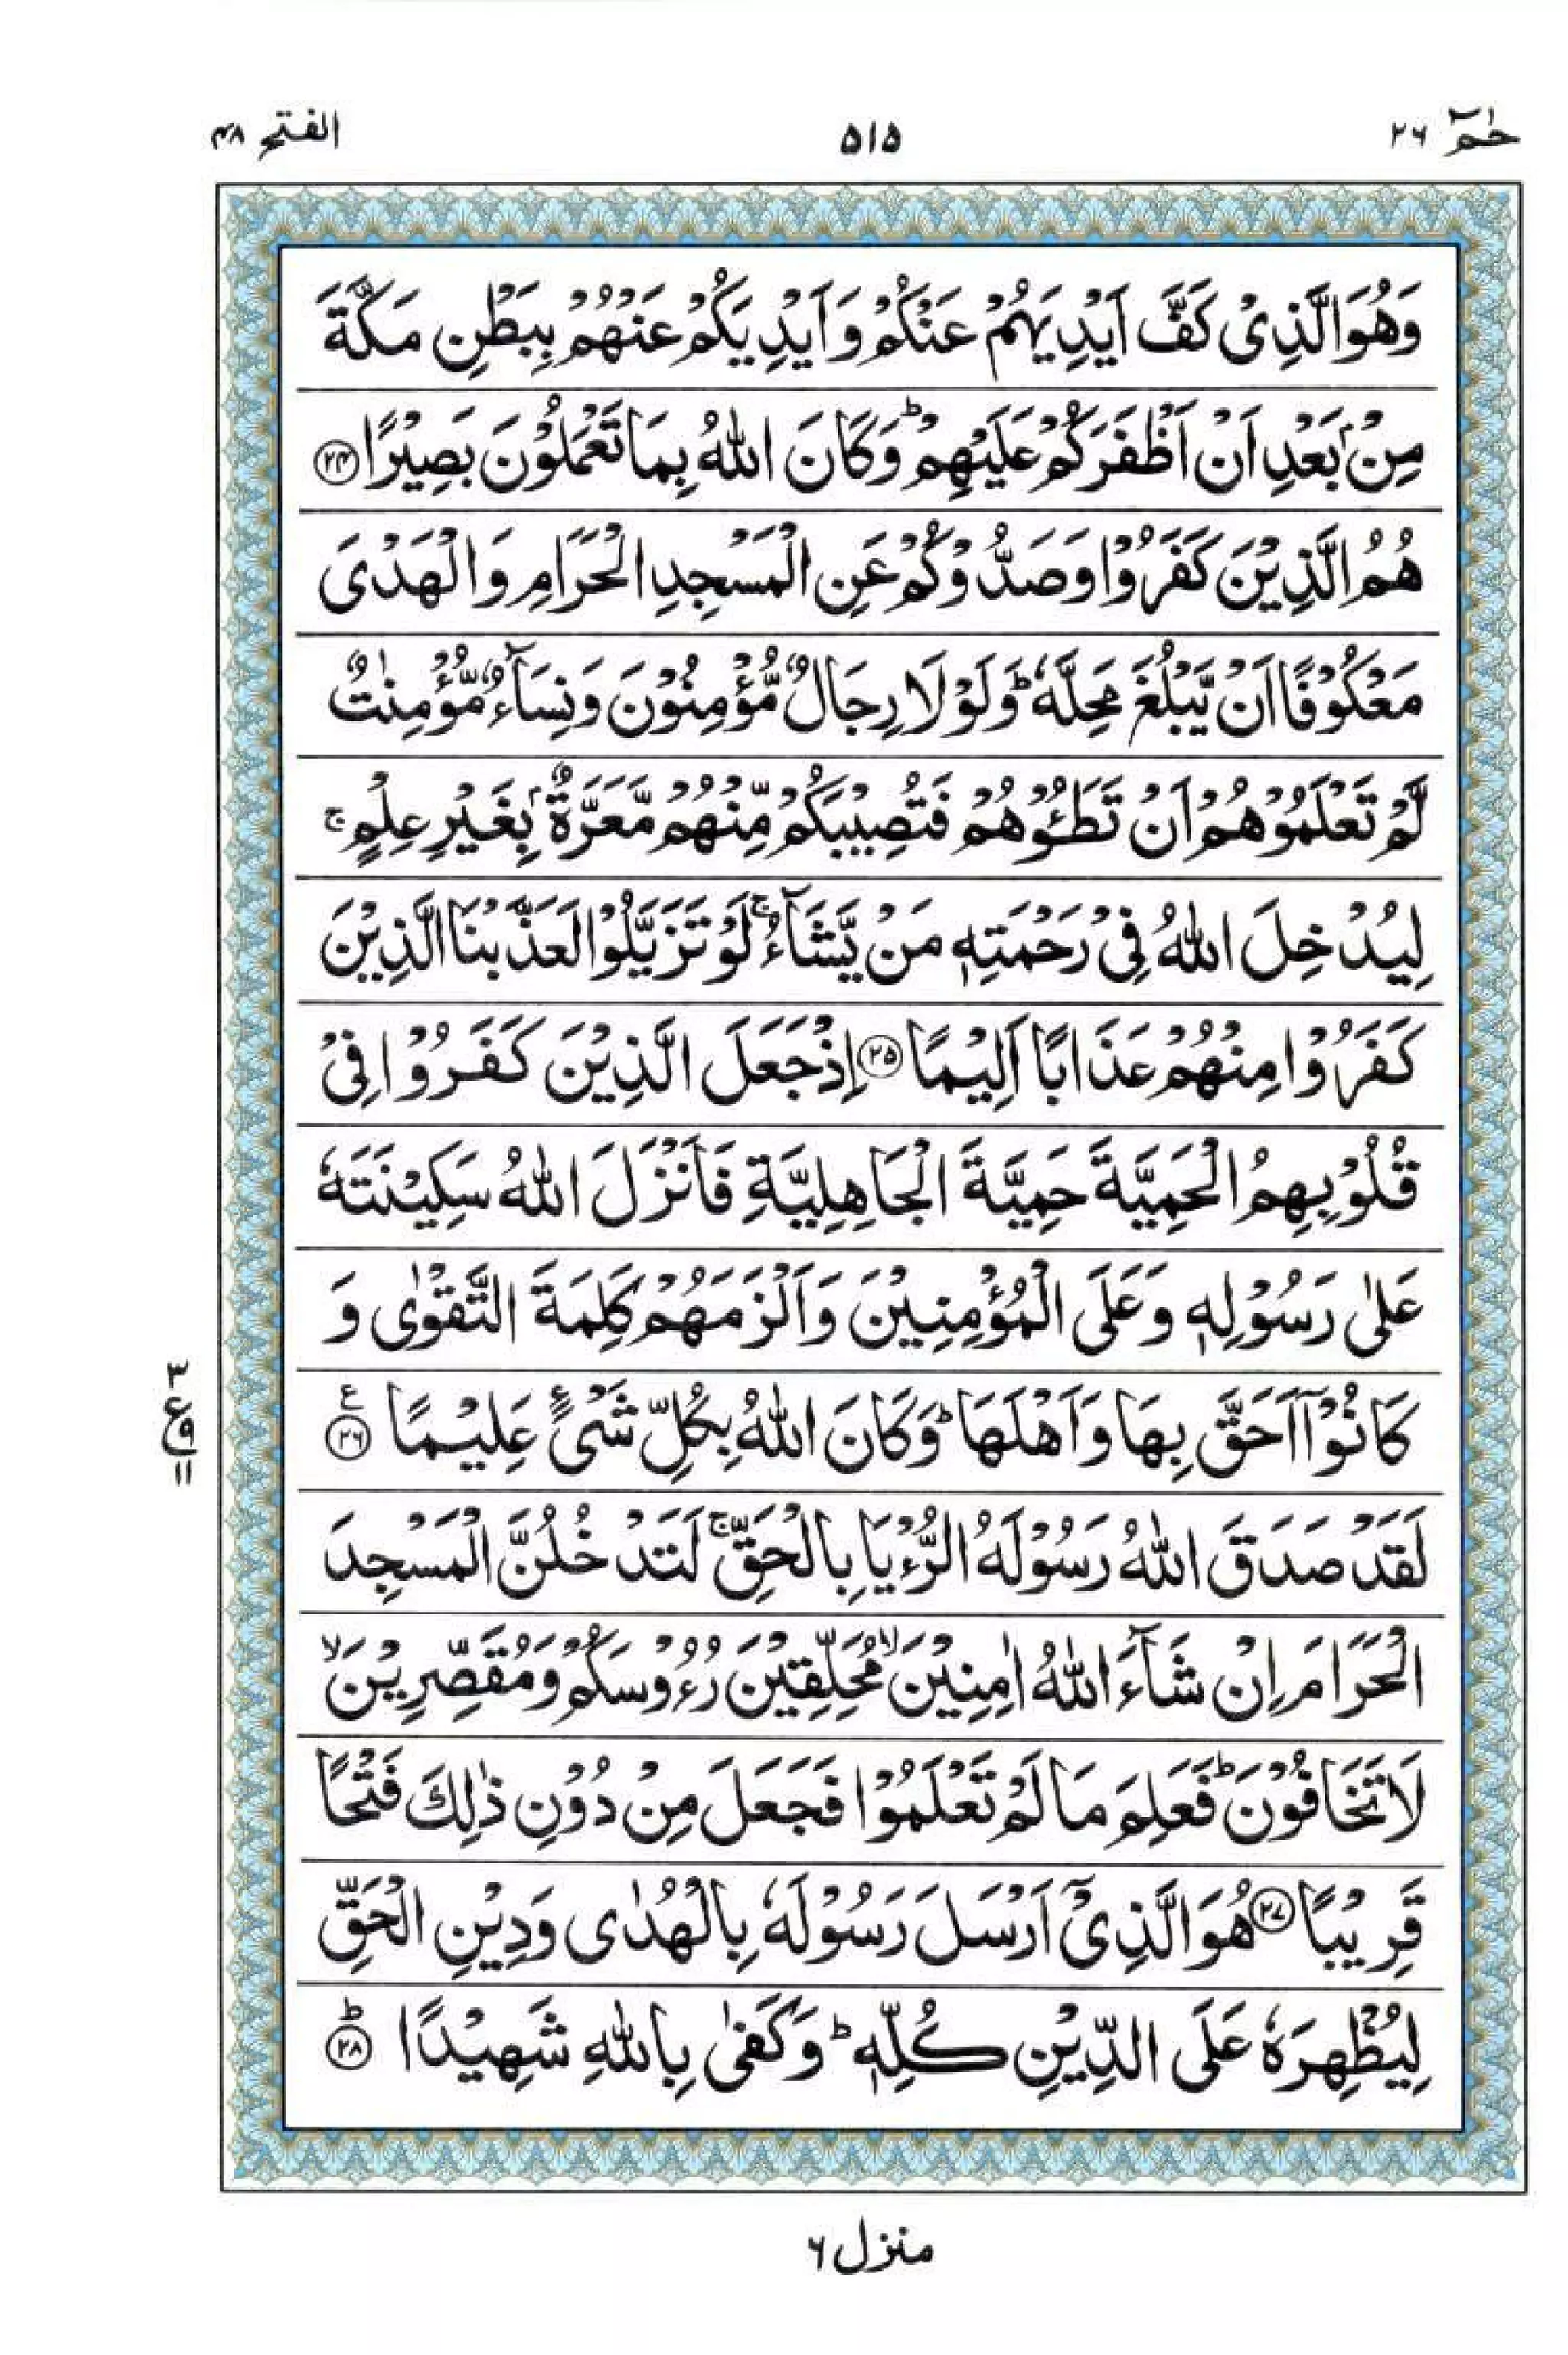 حٰمٓ ٢٦
٥١٥
الفتح ٤٨
وَهُوَ الَّذِیْ كَفَّ اَیْدِیَهُمْ عَنْكُمْ وَاَیْدِیَكُمْ عَنْهُمْ بِبَطْنِ مَكَّةَ
مِنْۢ بَعْدِ اَنْ اَظْفَرَكُمْ عَلَیْهِمْ ؕ وَكَانَ اللّٰهُ بِمَا تَعْمَلُوْنَ بَصِیْرًا ۟۲۴
هُمُ الَّذِیْنَ كَفَرُوْا وَصَدُّوْكُمْ عَنِ الْمَسْجِدِ الْحَرَامِ وَالْهَدْیَ
مَعْكُوْفًا اَنْ یَّبْلُغَ مَحِلَّهٗ ؕ وَلَوْلَا رِجَالٌ مُّؤْمِنُوْنَ وَنِسَآءٌ مُّؤْمِنٰتٌ
لَّمْ تَعْلَمُوْهُمْ اَنْ تَطَـُٔوْهُمْ فَتُصِیْبَكُمْ مِّنْهُمْ مَّعَرَّةٌۢ بِغَیْرِ عِلْمٍ ۚ
لِیُدْخِلَ اللّٰهُ فِیْ رَحْمَتِهٖ مَنْ یَّشَآءُ ۚ لَوْ تَزَیَّلُوْا لَعَذَّبْنَا الَّذِیْنَ
كَفَرُوْا مِنْهُمْ عَذَابًا اَلِیْمًا ۟۲۵ اِذْ جَعَلَ الَّذِیْنَ كَفَرُوْا فِیْ
قُلُوْبِهِمُ الْحَمِیَّةَ حَمِیَّةَ الْجَاهِلِیَّةِ فَاَنْزَلَ اللّٰهُ سَكِیْنَتَهٗ
عَلٰی رَسُوْلِهٖ وَعَلَی الْمُؤْمِنِیْنَ وَاَلْزَمَهُمْ كَلِمَةَ التَّقْوٰی وَ
كَانُوْۤا اَحَقَّ بِهَا وَاَهْلَهَا ؕ وَكَانَ اللّٰهُ بِكُلِّ شَیْءٍ عَلِیْمًا ۟۲۶ ع
٣
ع
٩
١١
لَقَدْ صَدَقَ اللّٰهُ رَسُوْلَهُ الرُّءْیَا بِالْحَقِّ ۚ لَتَدْخُلُنَّ الْمَسْجِدَ
الْحَرَامَ اِنْ شَآءَ اللّٰهُ اٰمِنِیْنَ ۙ مُحَلِّقِیْنَ رُءُوْسَكُمْ وَمُقَصِّرِیْنَ ۙ
لَا تَخَافُوْنَ ؕ فَعَلِمَ مَا لَمْ تَعْلَمُوْا فَجَعَلَ مِنْ دُوْنِ ذٰلِكَ فَتْحًا
قَرِیْبًا ۟۲۷ هُوَ الَّذِیْۤ اَرْسَلَ رَسُوْلَهٗ بِالْهُدٰی وَدِیْنِ الْحَقِّ
لِیُظْهِرَهٗ عَلَی الدِّیْنِ كُلِّهٖ ؕ وَكَفٰی بِاللّٰهِ شَهِیْدًا ۟۲۸ ؕ
منزل ٦